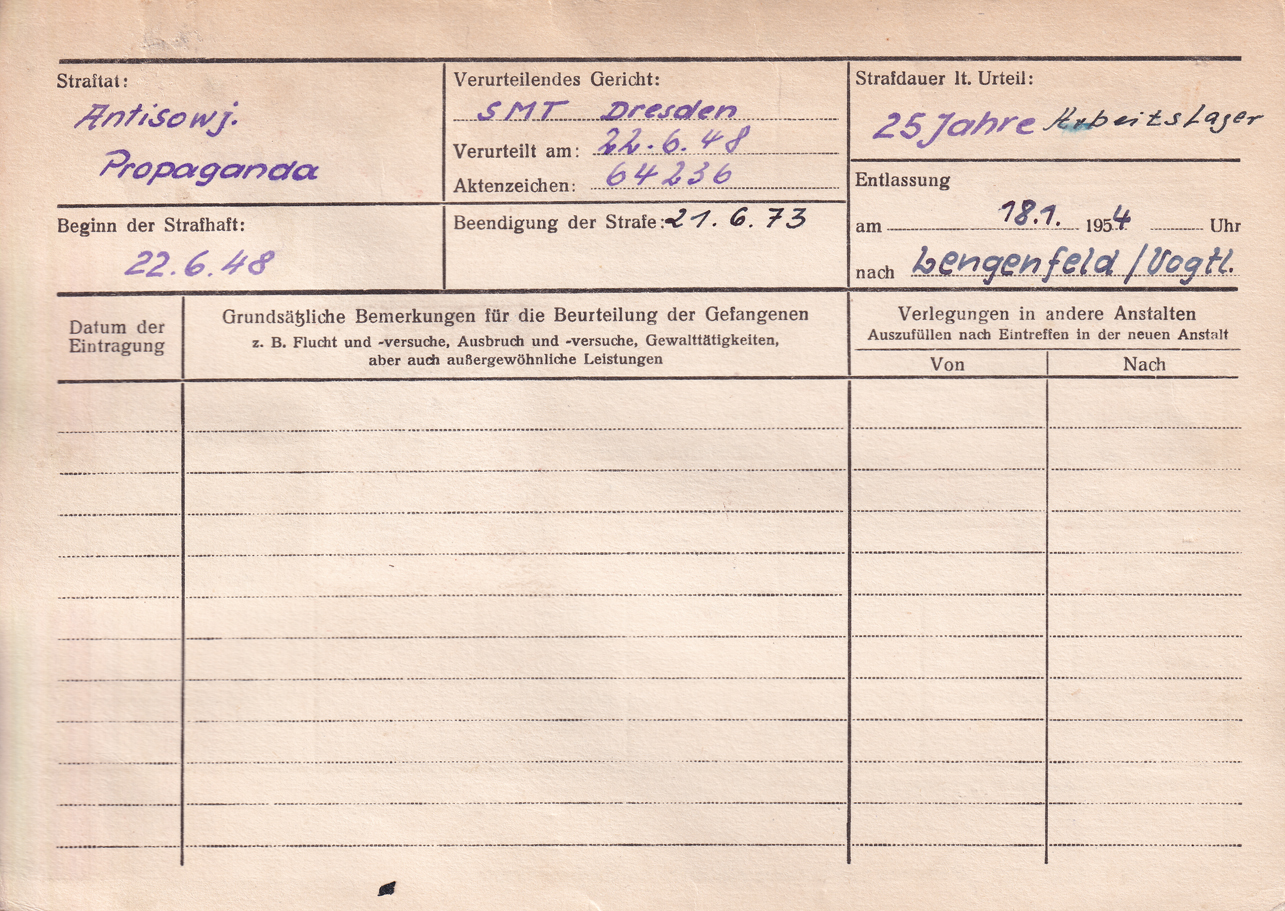 Straftat:
Antisowj.
Propaganda
Verurteilendes Gericht:
SMT Dresden
Verurteilt am: 22.6.48
Aktenzeichen: 64236
Strafdauer lt. Urteil:
25 Jahre Arbeitslager
Beginn der Strafhaft:
22.6.48
Beendigung der Strafe: 21.6.73
Entlassung
am 18.1. 1954 Uhr
nach Lengenfeld/Vogtl.
Datum der
Eintragung
Grundsätzliche Bemerkungen für die Beurteilung der Gefangenen
z. B. Flucht und -versuche, Ausbruch und -versuche, Gewalttätigkeiten,
aber auch außergewöhnliche Leistungen
Verlegungen in andere Anstalten
Auszufüllen nach Eintreffen in der neuen Anstalt
Von Nach